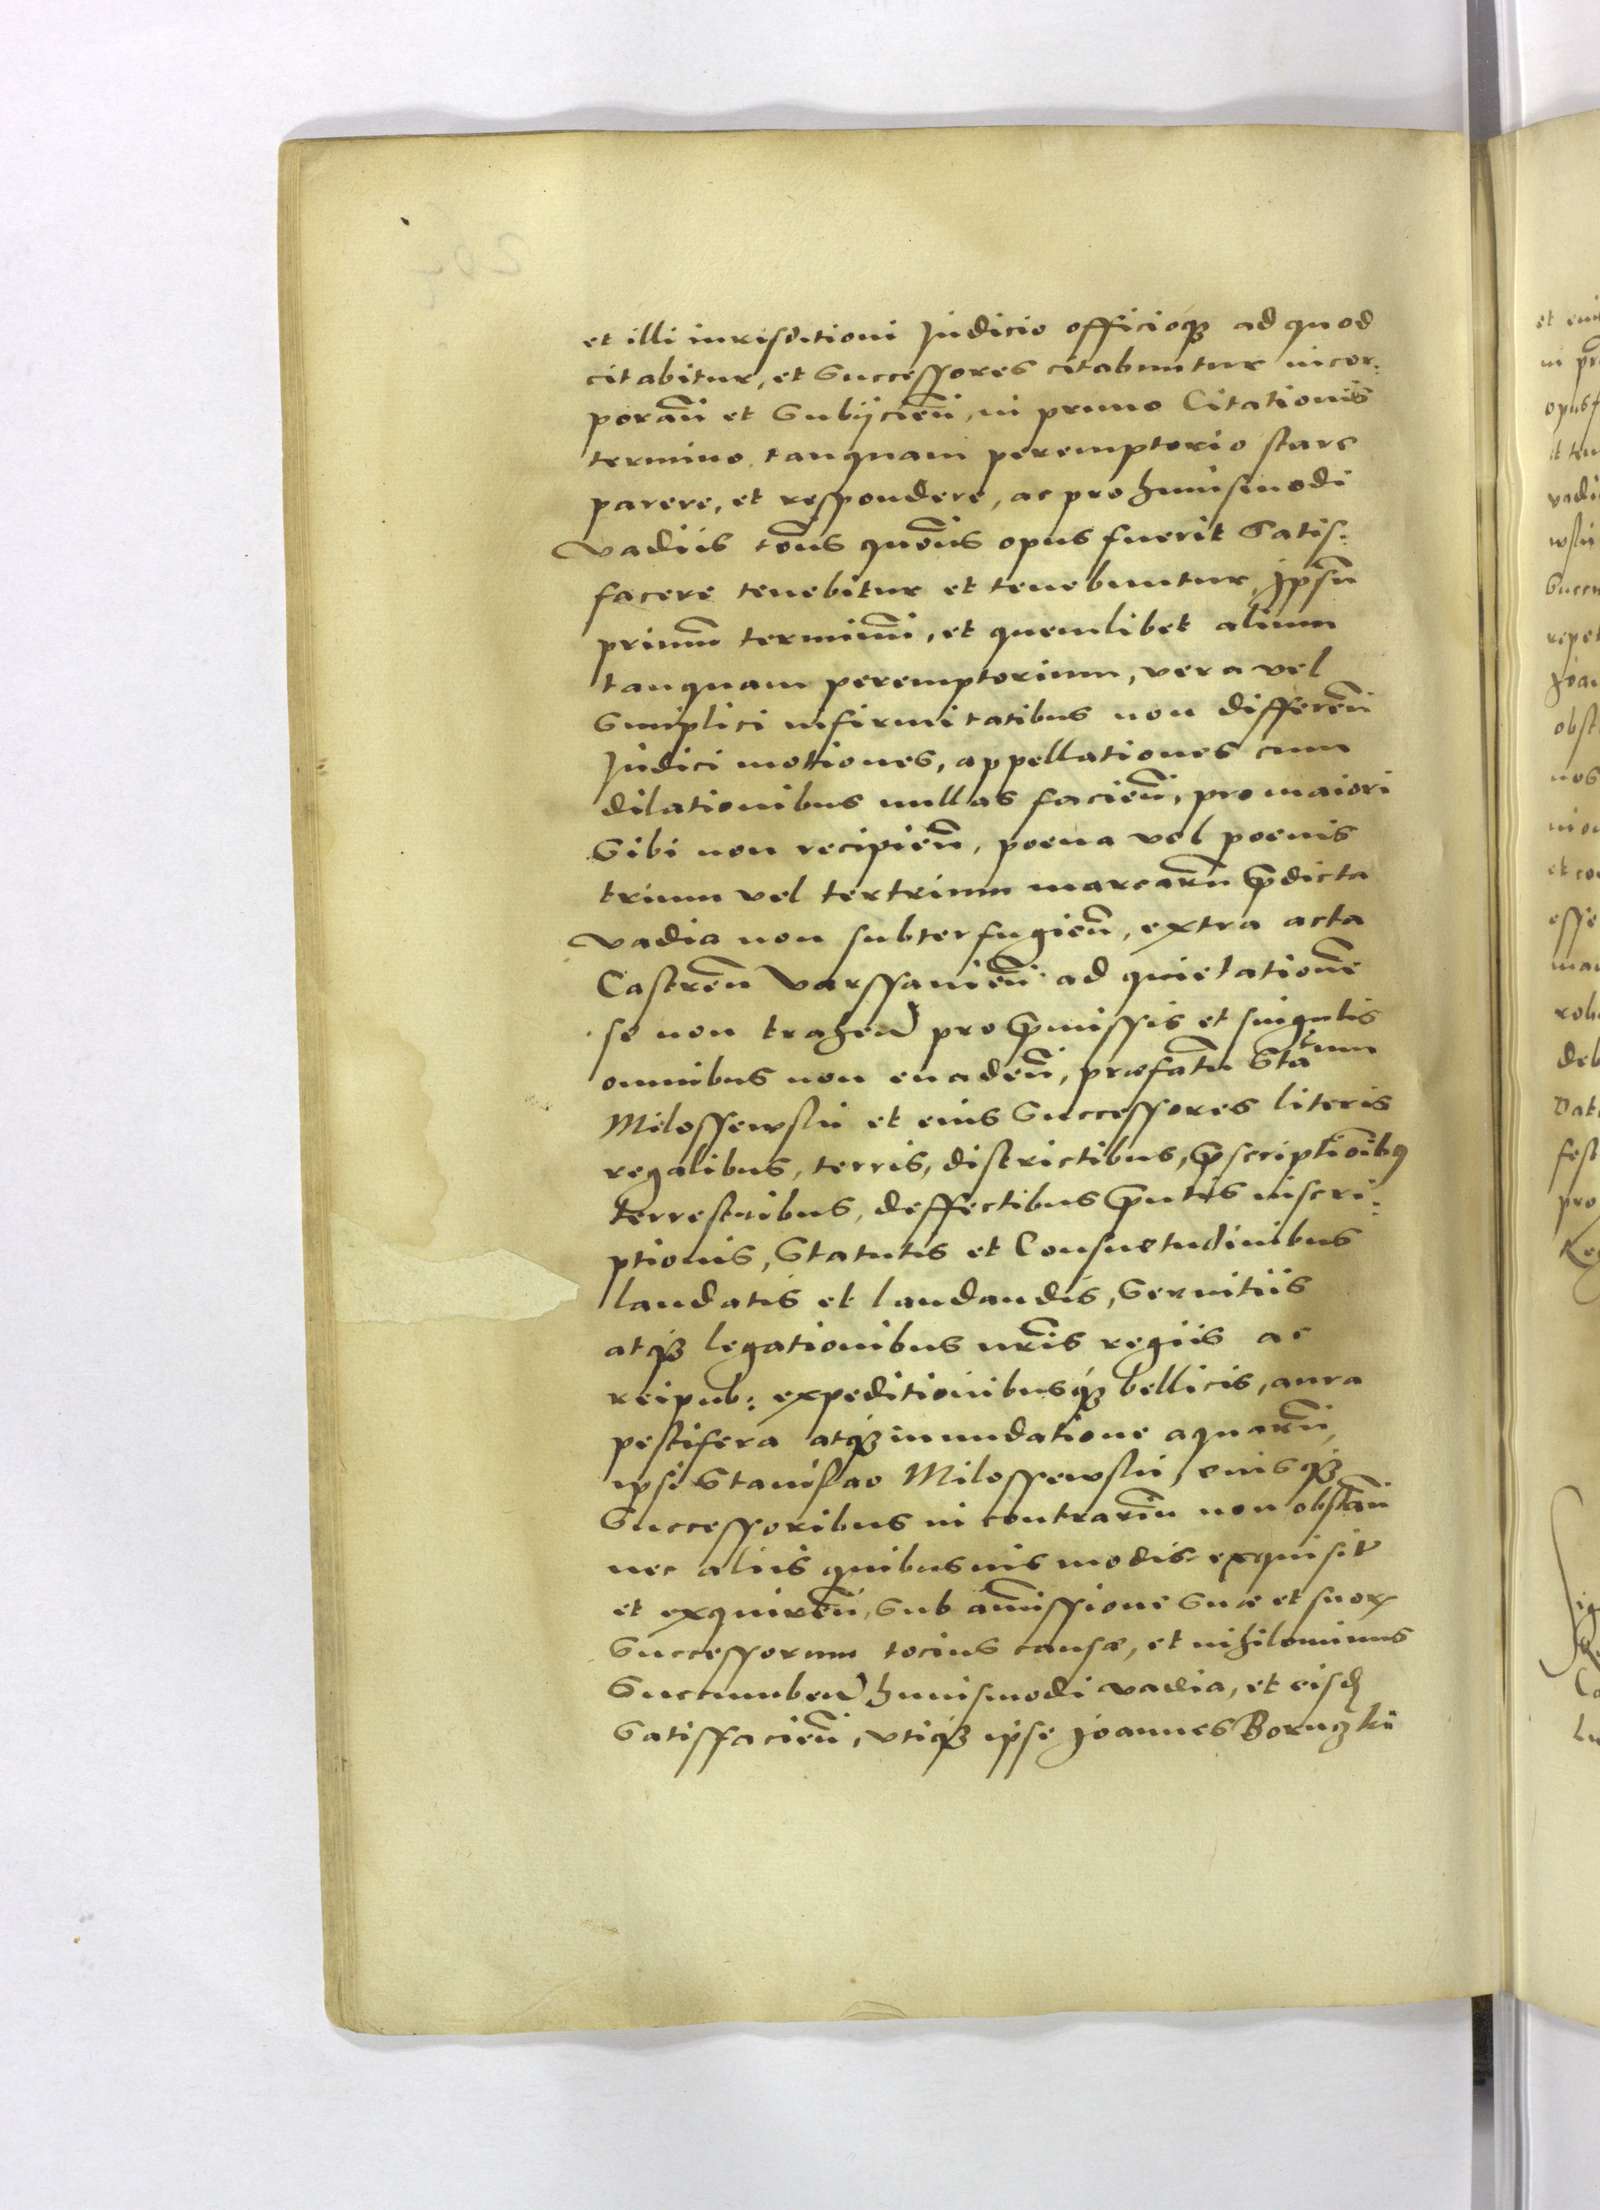 et illi iurisditioni Judicio officioqȝ ad quod
citabitur, et Successores citabuntur incor:
poran̄ et Subijcien̄, in primo Citationis
termino tanquam peremptorio stare
parere, et respondere, ac pro huiusmodi
vadiis tōns quōns opus fuerit Satis:
facere tenebitur et tenebuntur, Jpsūm
primūm terminūm, et quemlibet alium
tanquam peremptorium, vera vel
Simplici infirmitatibus non differen̄
Judici motiones, appellationes cum
dilationibus nullas facien̄, pro maiori
Sibi non recipien̄, poena vel poenis
trium vel tertrium marcarū p̄dicta
vadia non subterfugien̄, extra acta
Castren̄ Varssavien̄ ad quietationē
se non trahen̄ pro p̄missis et singulis
omnibus non evaden̄, præfatū Sta̅um
Milossewskii et eius Successores literis
regalibus, terris, districtibus, p̄scriptiōibus
terrestribus, deffectibus p̄ntis inscri:
ptionis, Statutis et Consuetudinibus
laudatis et laudandis, Servitiis
atqȝ legationibus nr̄is regiis ac
reipub: expeditionibusqȝ bellicis, aura
pestifera atqȝ inundatione aquarū,
ipsi Stanislao Milossewskii, eiusqȝ
Successoribus in contrariū non obstan̄
nec aliis quibusvis modis exquisit̄
et exquiren̄, Sub amissione Suæ et suoꝝ
Successorum tocius causæ, et nihilominus
Succumben̄ huiusmodi vadia, et eisdꝫ
Satisfacien̄, vtiqȝ ipse Joannes Boruczkii